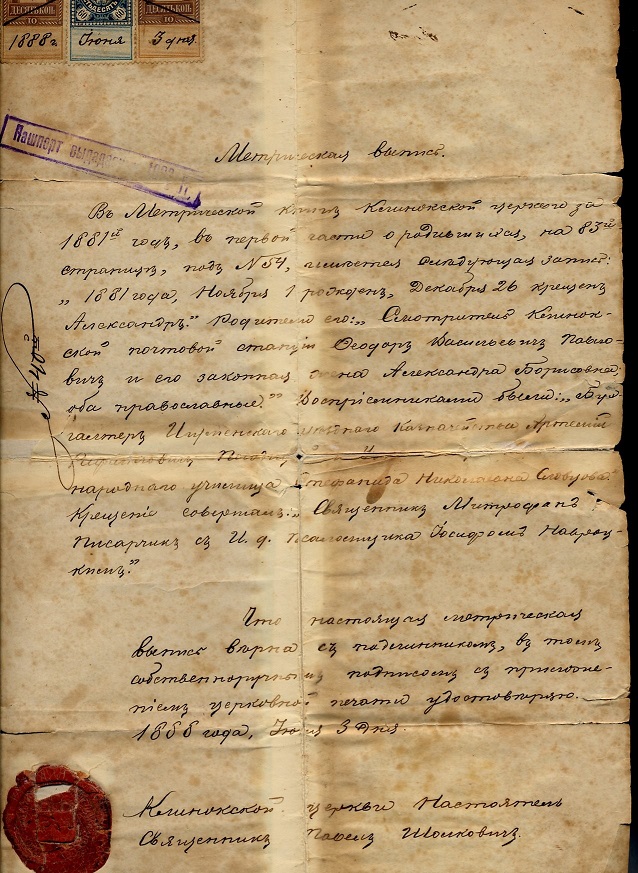 ДЕСЯТЬ КОП.
10
1888 г.
ДЕСЯТЬ
50
Іюня
ДЕСЯТЬ КОП.
10
3 дня.
Пашпорт выдадо
Метрическая выпись.
№ 40й
Въ Метрической книгѣ Клинокской церкви за
1881й годъ, въ первой части о родившихся, на 83й
страницѣ, подъ №54, имѣется слѣдующая запись:
„1881 года, Ноября 1 рожденъ, Декабря 26 крещенъ
Александръ." Родители его: „Смотритель Клинок-
ской почтовой станціи Ѳеодоръ Васильевичъ Павло-
вичъ и его законная жена Александра Борисовна
оба православные." Воспріемниками были: „Бух
галтеръ Игуменскаго уѣзднаго Казначейства Артемій
народнаго училища Степанида Николаевна Слевцова.
Крещеніе совершалъ: „Священникъ Митрофанъ
Писарчикъ съ И. д. псаломщика Іосифомъ Навроц-
кимъ."
Что настоящая метрическая
выпись вѣрна съ подлинникомъ, въ томъ
собственноручнымъ подписомъ съ приложе-
ніемъ церковной печати удостовѣряю.
1888 года, Іюня 3 дня.
Клинокской церкви Настоятель
Священникъ Павелъ Шолковичъ.